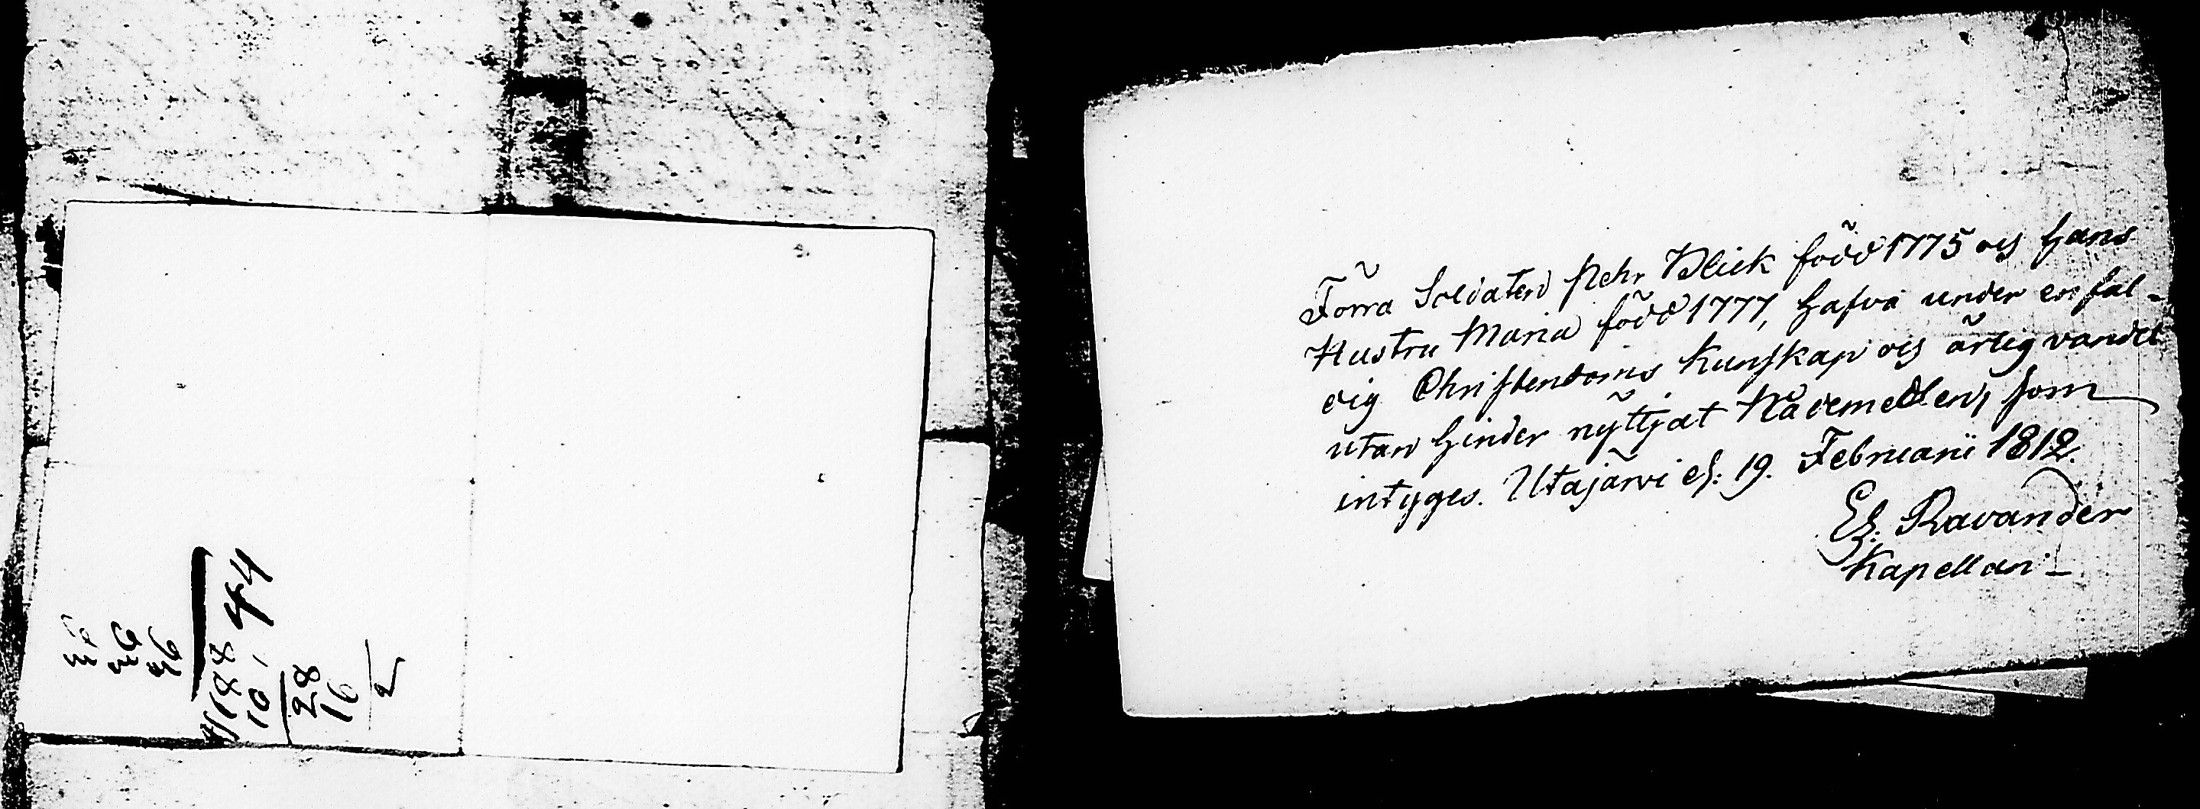 36
36
36
4/188 44
10,
28
16
2
Förra Soldaten Pehr Blick född 1775 och hans
Hustru Maria född 1777, hafva under enfal-
dig Christendoms Kunskap och ärlig vandel
utan hinder nyttjat Nådemedlen, som
intyges. Utajärvi d: 19. Februarii 1812.
Ez. Ravander
Kapellan